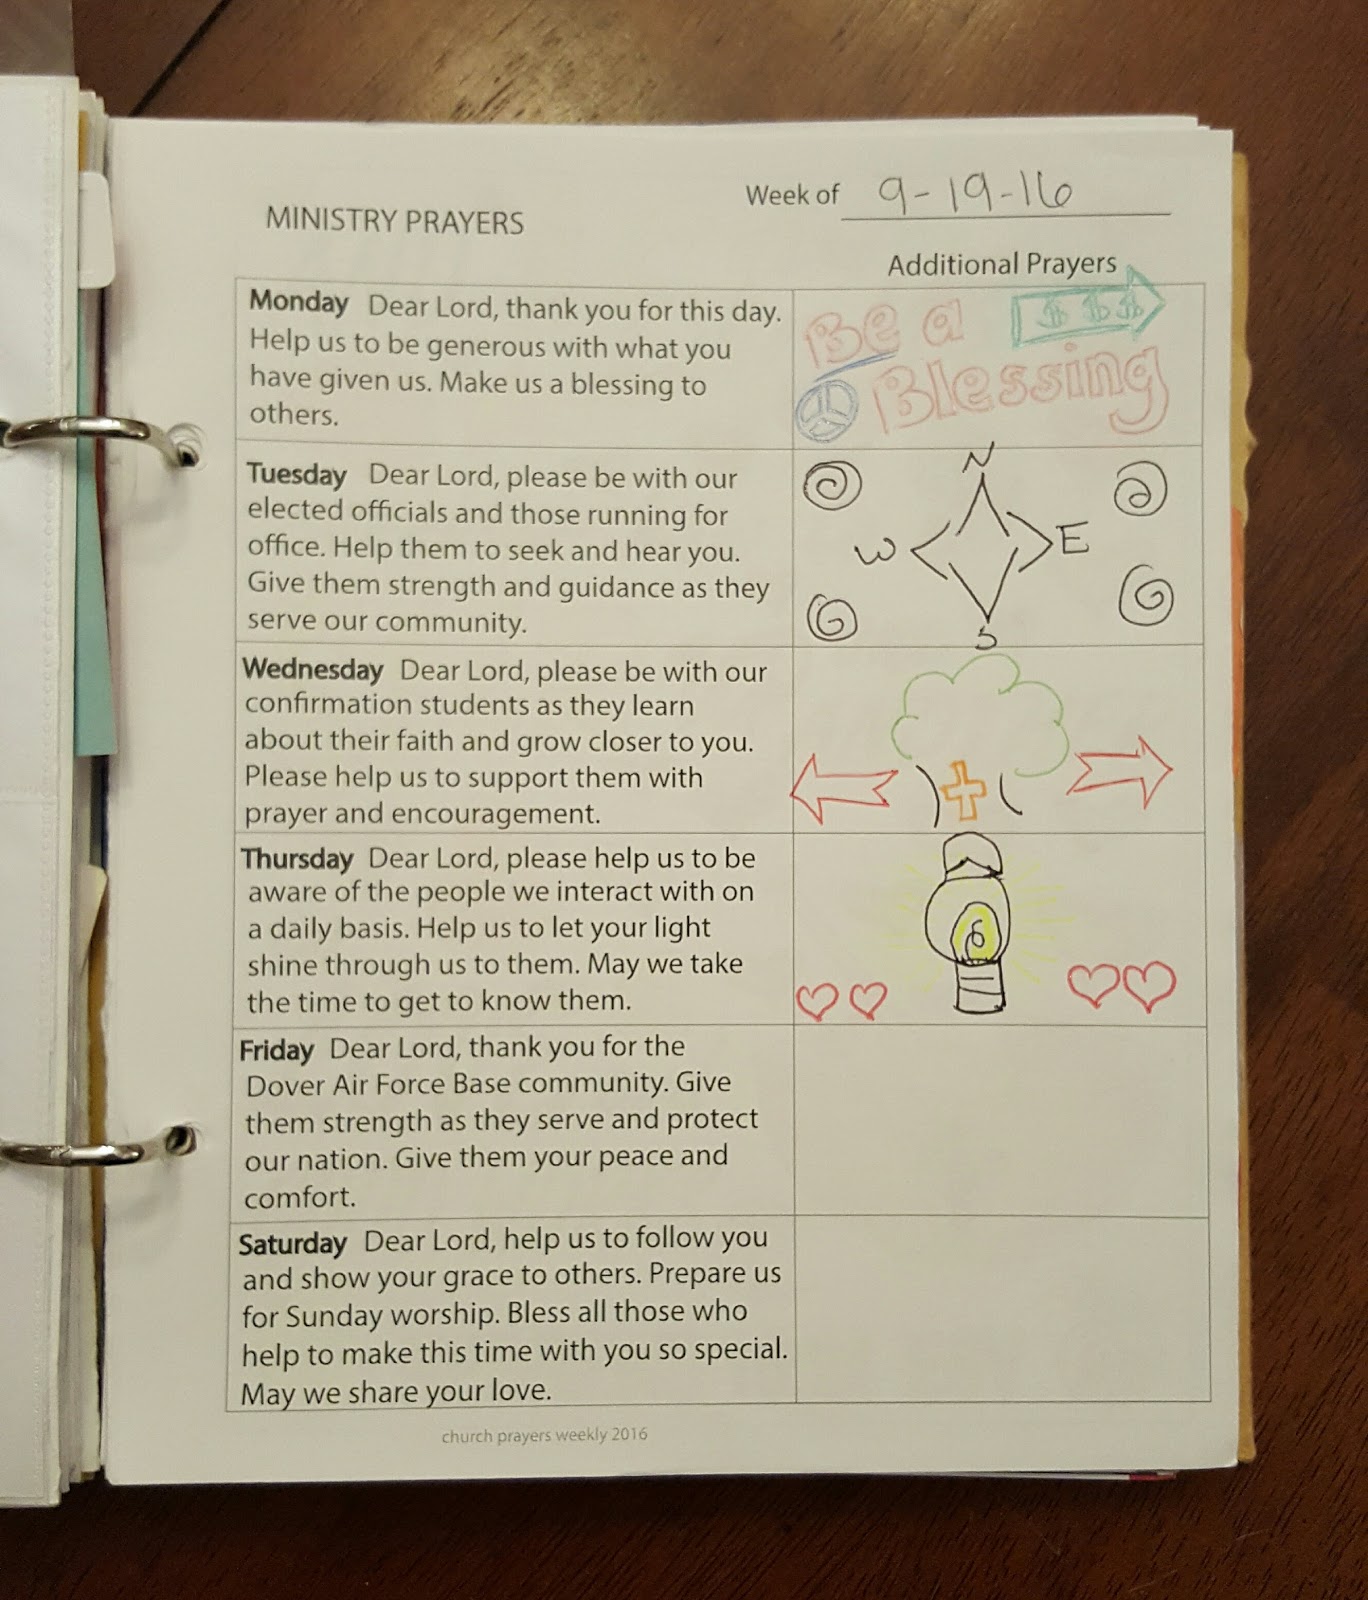 Week of 9-19-16
MINISTRY PRAYERS
Additional Prayers
Monday Dear Lord, thank you for this day.
Help us to be generous with what you
have given us. Make us a blessing to
others.
Be a
$ $ $
Blessing
Tuesday Dear Lord, please be with our
elected officials and those running for
office. Help them to seek and hear you.
Give them strength and guidance as they
serve our community.
N
W E
S
Wednesday Dear Lord, please be with our
confirmation students as they learn
about their faith and grow closer to you.
Please help us to support them with
prayer and encouragement.
Thursday Dear Lord, please help us to be
aware of the people we interact with on
a daily basis. Help us to let your light
shine through us to them. May we take
the time to get to know them.
Friday Dear Lord, thank you for the
Dover Air Force Base community. Give
them strength as they serve and protect
our nation. Give them your peace and
comfort.
Saturday Dear Lord, help us to follow you
and show your grace to others. Prepare us
for Sunday worship. Bless all those who
help to make this time with you so special.
May we share your love.
church prayers weekly 2016